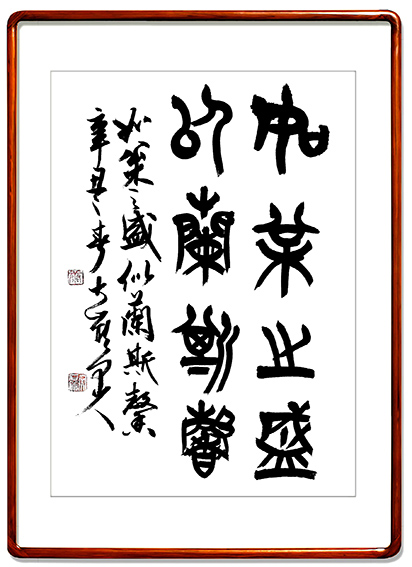 如松之盛
似蘭斯馨
如松之盛似蘭斯馨
辛丑春